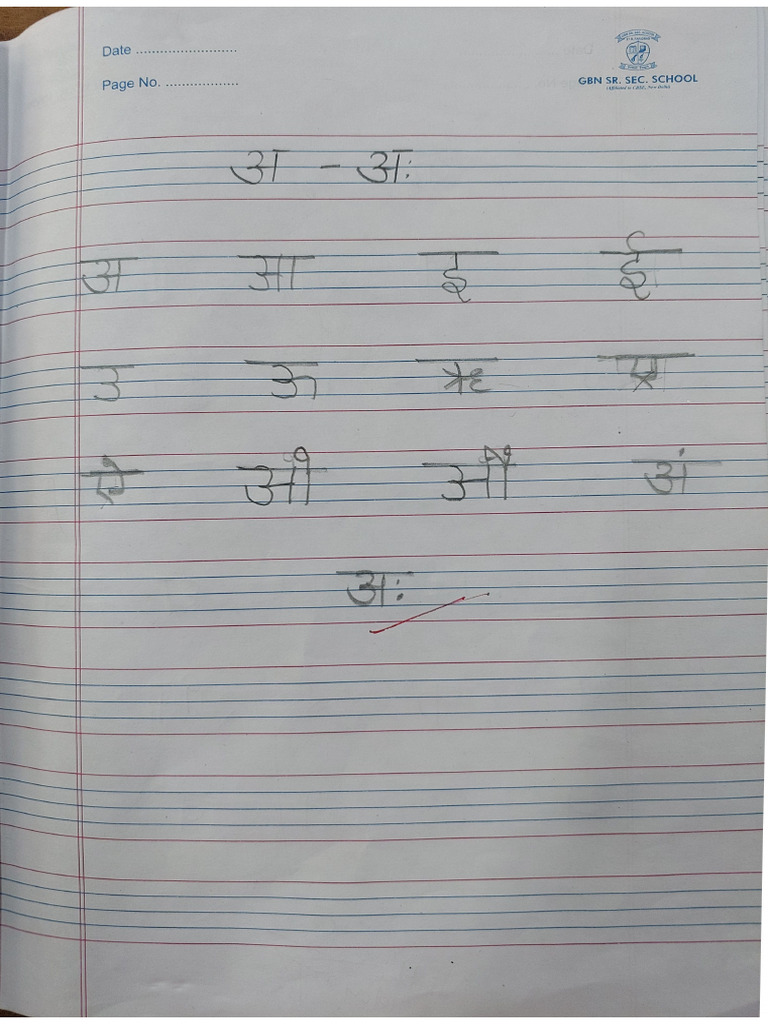 Date ..........................
GBN SR. SEC. SCHOOL
(Affiliated to CBSE, New Delhi)
Page No. ..................
अ - अः
अ आ इ ई
उ ऊ ऋ ए
ऐ ओ औ अं
अः